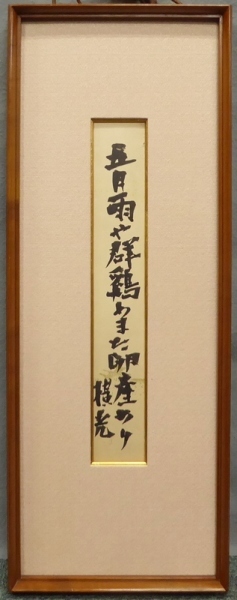 五月雨や群鶏あまた卵産めり